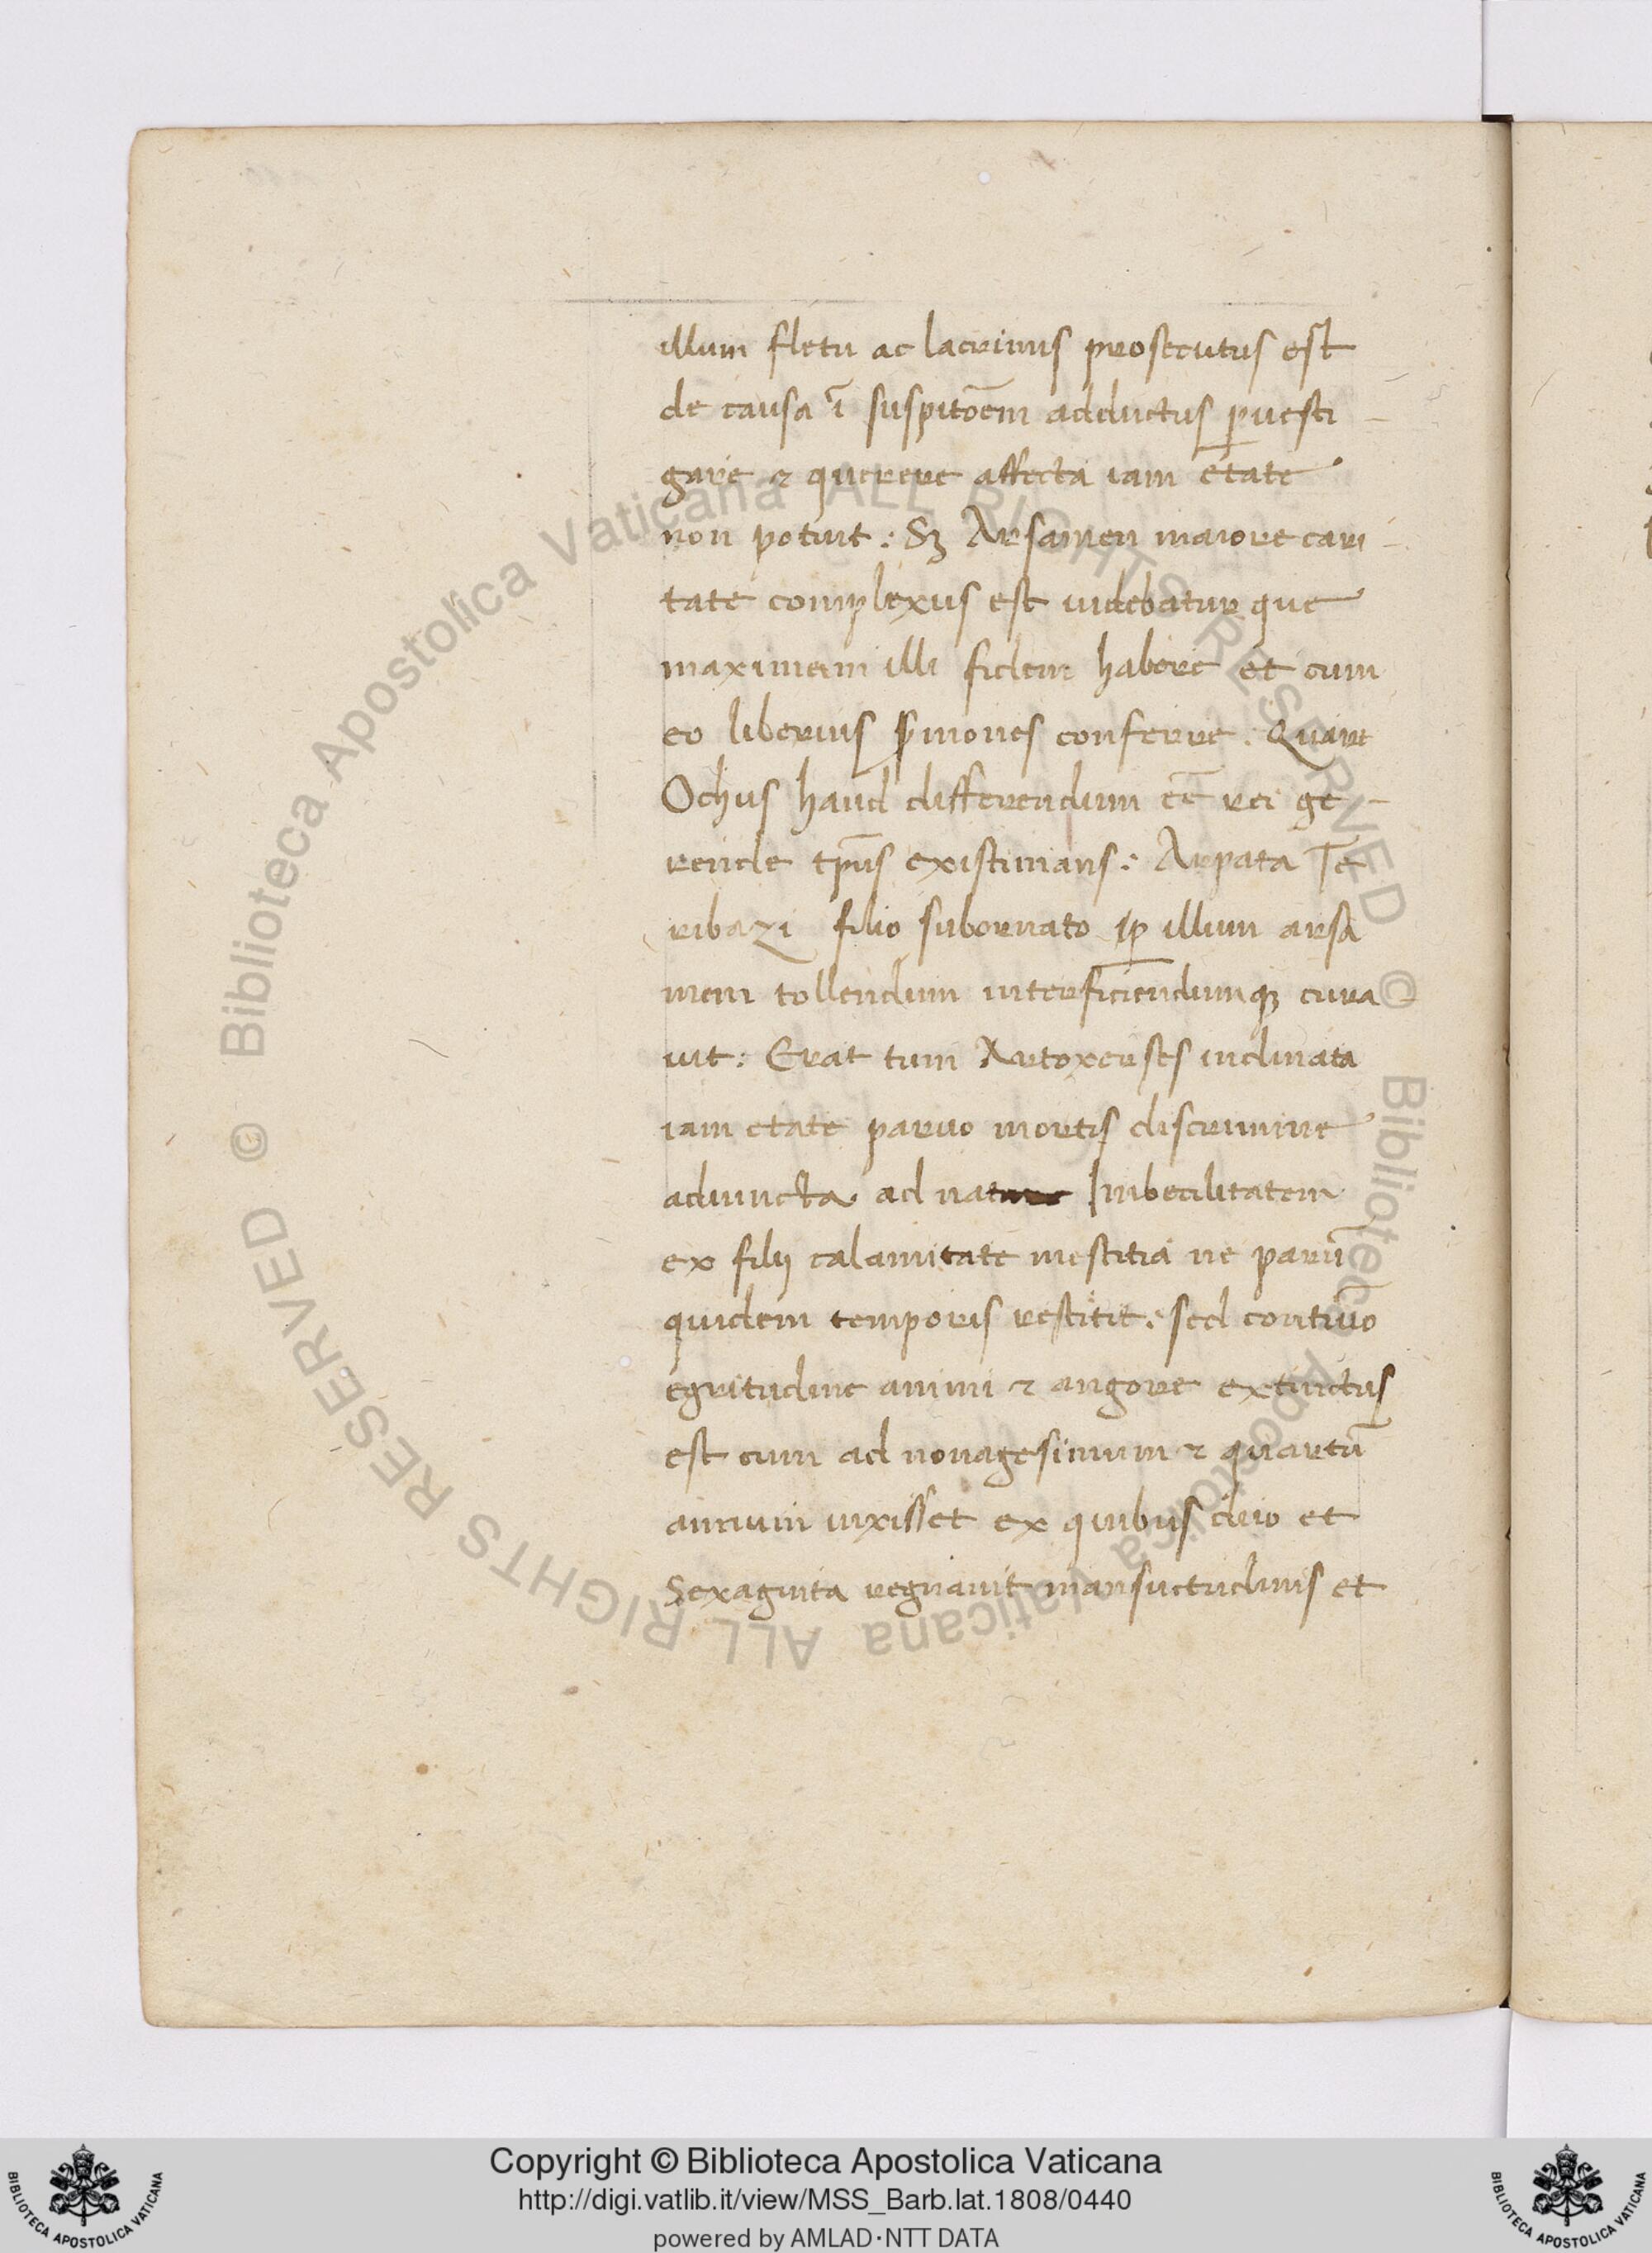 illum fletu ac lacrimis prosecutus est
de causa ī suspitōem adductus ꝑuesti-
gare ⁊ querere affecta iam etate
non potuit: Sꝫ Arsamen maiore cari-
tate complexus est uidebatur que
maximam illi fidem habere et cum
eo liberius sꝑmones conferre. Quare
Ochus haud differendum eē rei ge-
rende tp̄us existimans: Arpata Te
ribazi filio subornato ꝑ illum arsa
mem tollendum interficiendumqꝫ cura
uit: Erat tum Artoxerses inclinata
iam etate paruo mortis discrimine
adiuncta ad nature Imbecilitatem
ex filij calamitate mestitia ne parū
quidem temporis restitit: sed continuo
egritudine animi ⁊ angore extinctus
est cum ad nonagesimum ⁊ quartū
annum uixisset ex quibus duo et
Sexaginta regnauit mansuetudinis et
© Biblioteca Apostolica Vaticana ALL RIGHTS RESERVED
© Biblioteca Apostolica Vaticana ALL RIGHTS RESERVED
Copyright © Biblioteca Apostolica Vaticana
http://digi.vatlib.it/view/MSS_Barb.lat.1808/0440
powered by AMLAD·NTT DATA
BIBLIOTECA APOSTOLICA VATICANA
BIBLIOTECA APOSTOLICA VATICANA